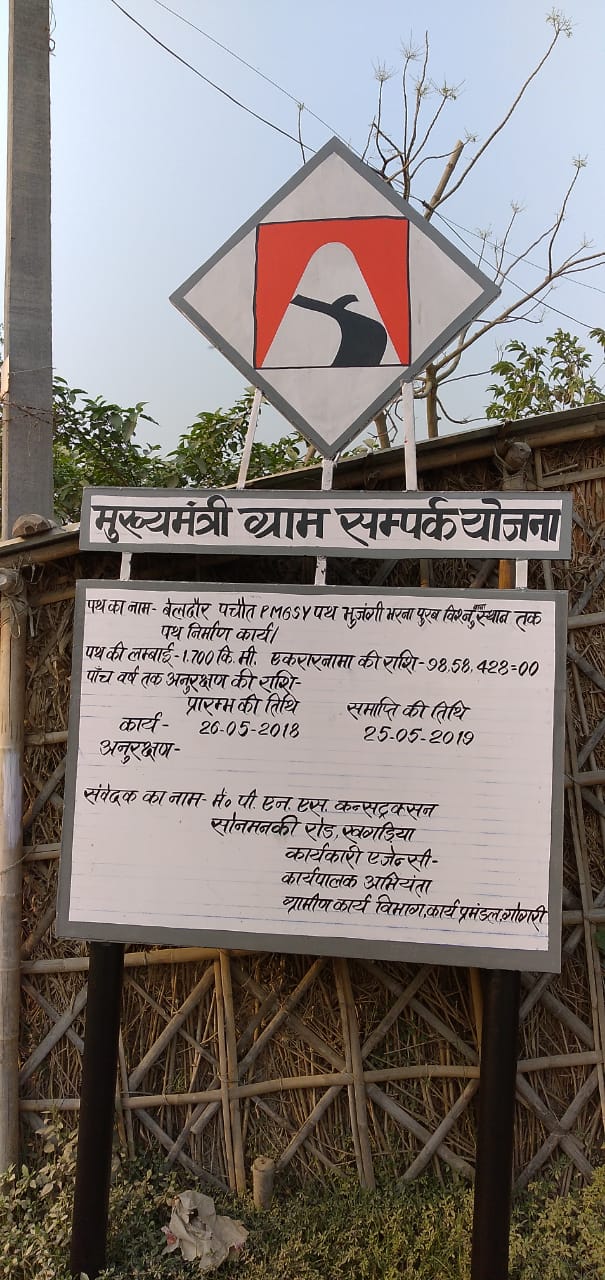 मुख्यमंत्री ग्राम सम्पर्क योजना
पथ का नाम- बेलदौर पचौत PMGSY पथ भुजंगी भरना पुरब विश्नु स्थान तक
पथ निर्माण कार्य।
पथ की लम्बाई-1.700 कि.मी. एकरारनामा की राशि-98,58,428=00
पाँच वर्ष तक अनुरक्षण की राशि-
प्रारम्भ की तिथि समाप्ति की तिथि
कार्य- 26-05-2018 25-05-2019
अनुरक्षण-
संवेदक का नाम- मे० पी. एन. एस. कन्सट्रक्सन
सोनमनकी रोड, खगड़िया
कार्यकारी एजेन्सी-
कार्यपालक अभियंता
ग्रामीण कार्य विभाग, कार्य प्रमंडल, गोगरी